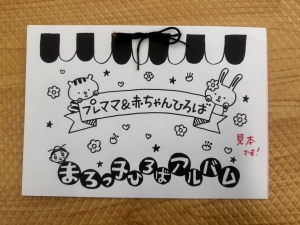 プレママ&赤ちゃんひろば
見本
です!
まろっ子ひろばアルバム